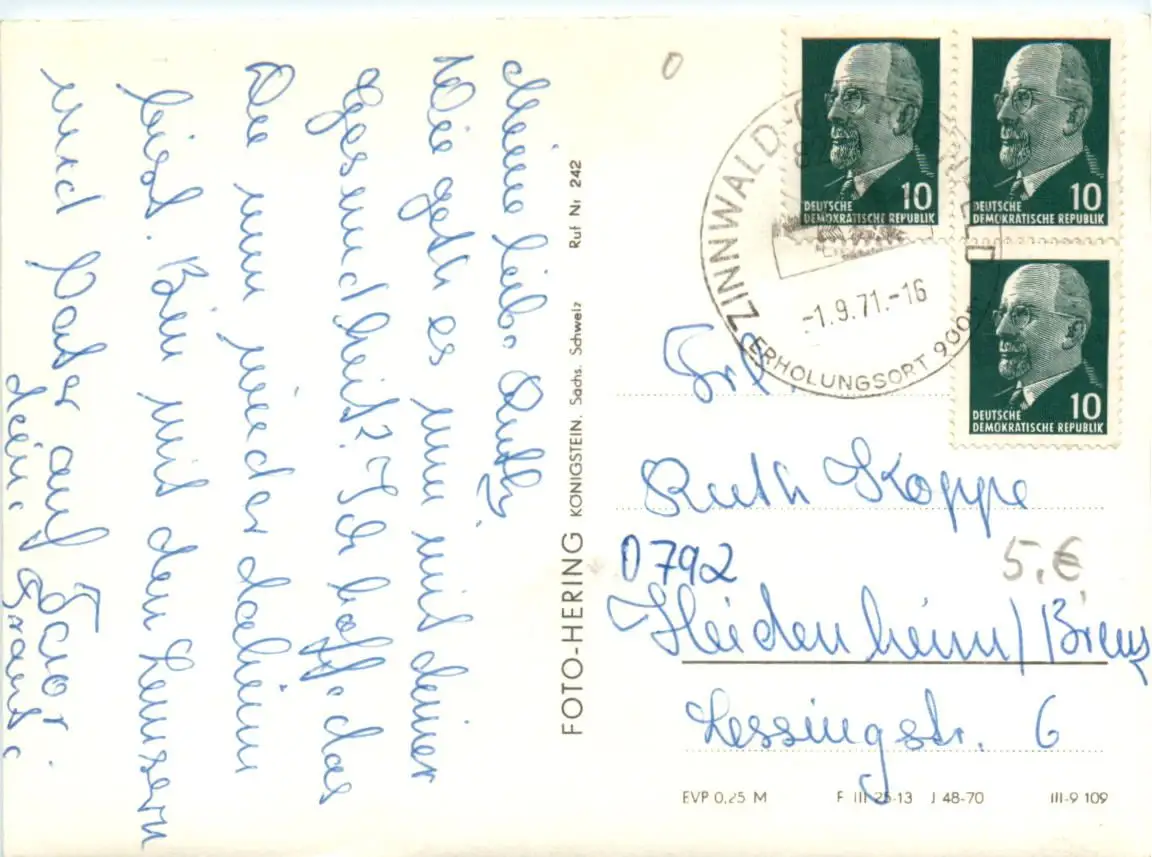 Meine liebe Ruth,
Wie geth es nun mit deiner
Gesundheit? Ich hoffe das
Du nun wieder daheim
bist. Bin mit den
und Vater auf
deine
FOTO-HERING KÖNIGSTEIN, Sächs. Schweiz Ruf Nr 242
0
10
DEUTSCHE
DEMOKRATISCHE REPUBLIK
10
DEUTSCHE
DEMOKRATISCHE REPUBLIK
10
DEUTSCHE
DEMOKRATISCHE REPUBLIK
ZINNWALD
-1.9.71.-16
ERHOLUNGSORT 900
Frl.
Ruth Koppe
D 792
5,€
Heidenheim/Brenz
Lessingstr. 6
EVP 0,25 M F III 25-13 J 48-70 III-9 109